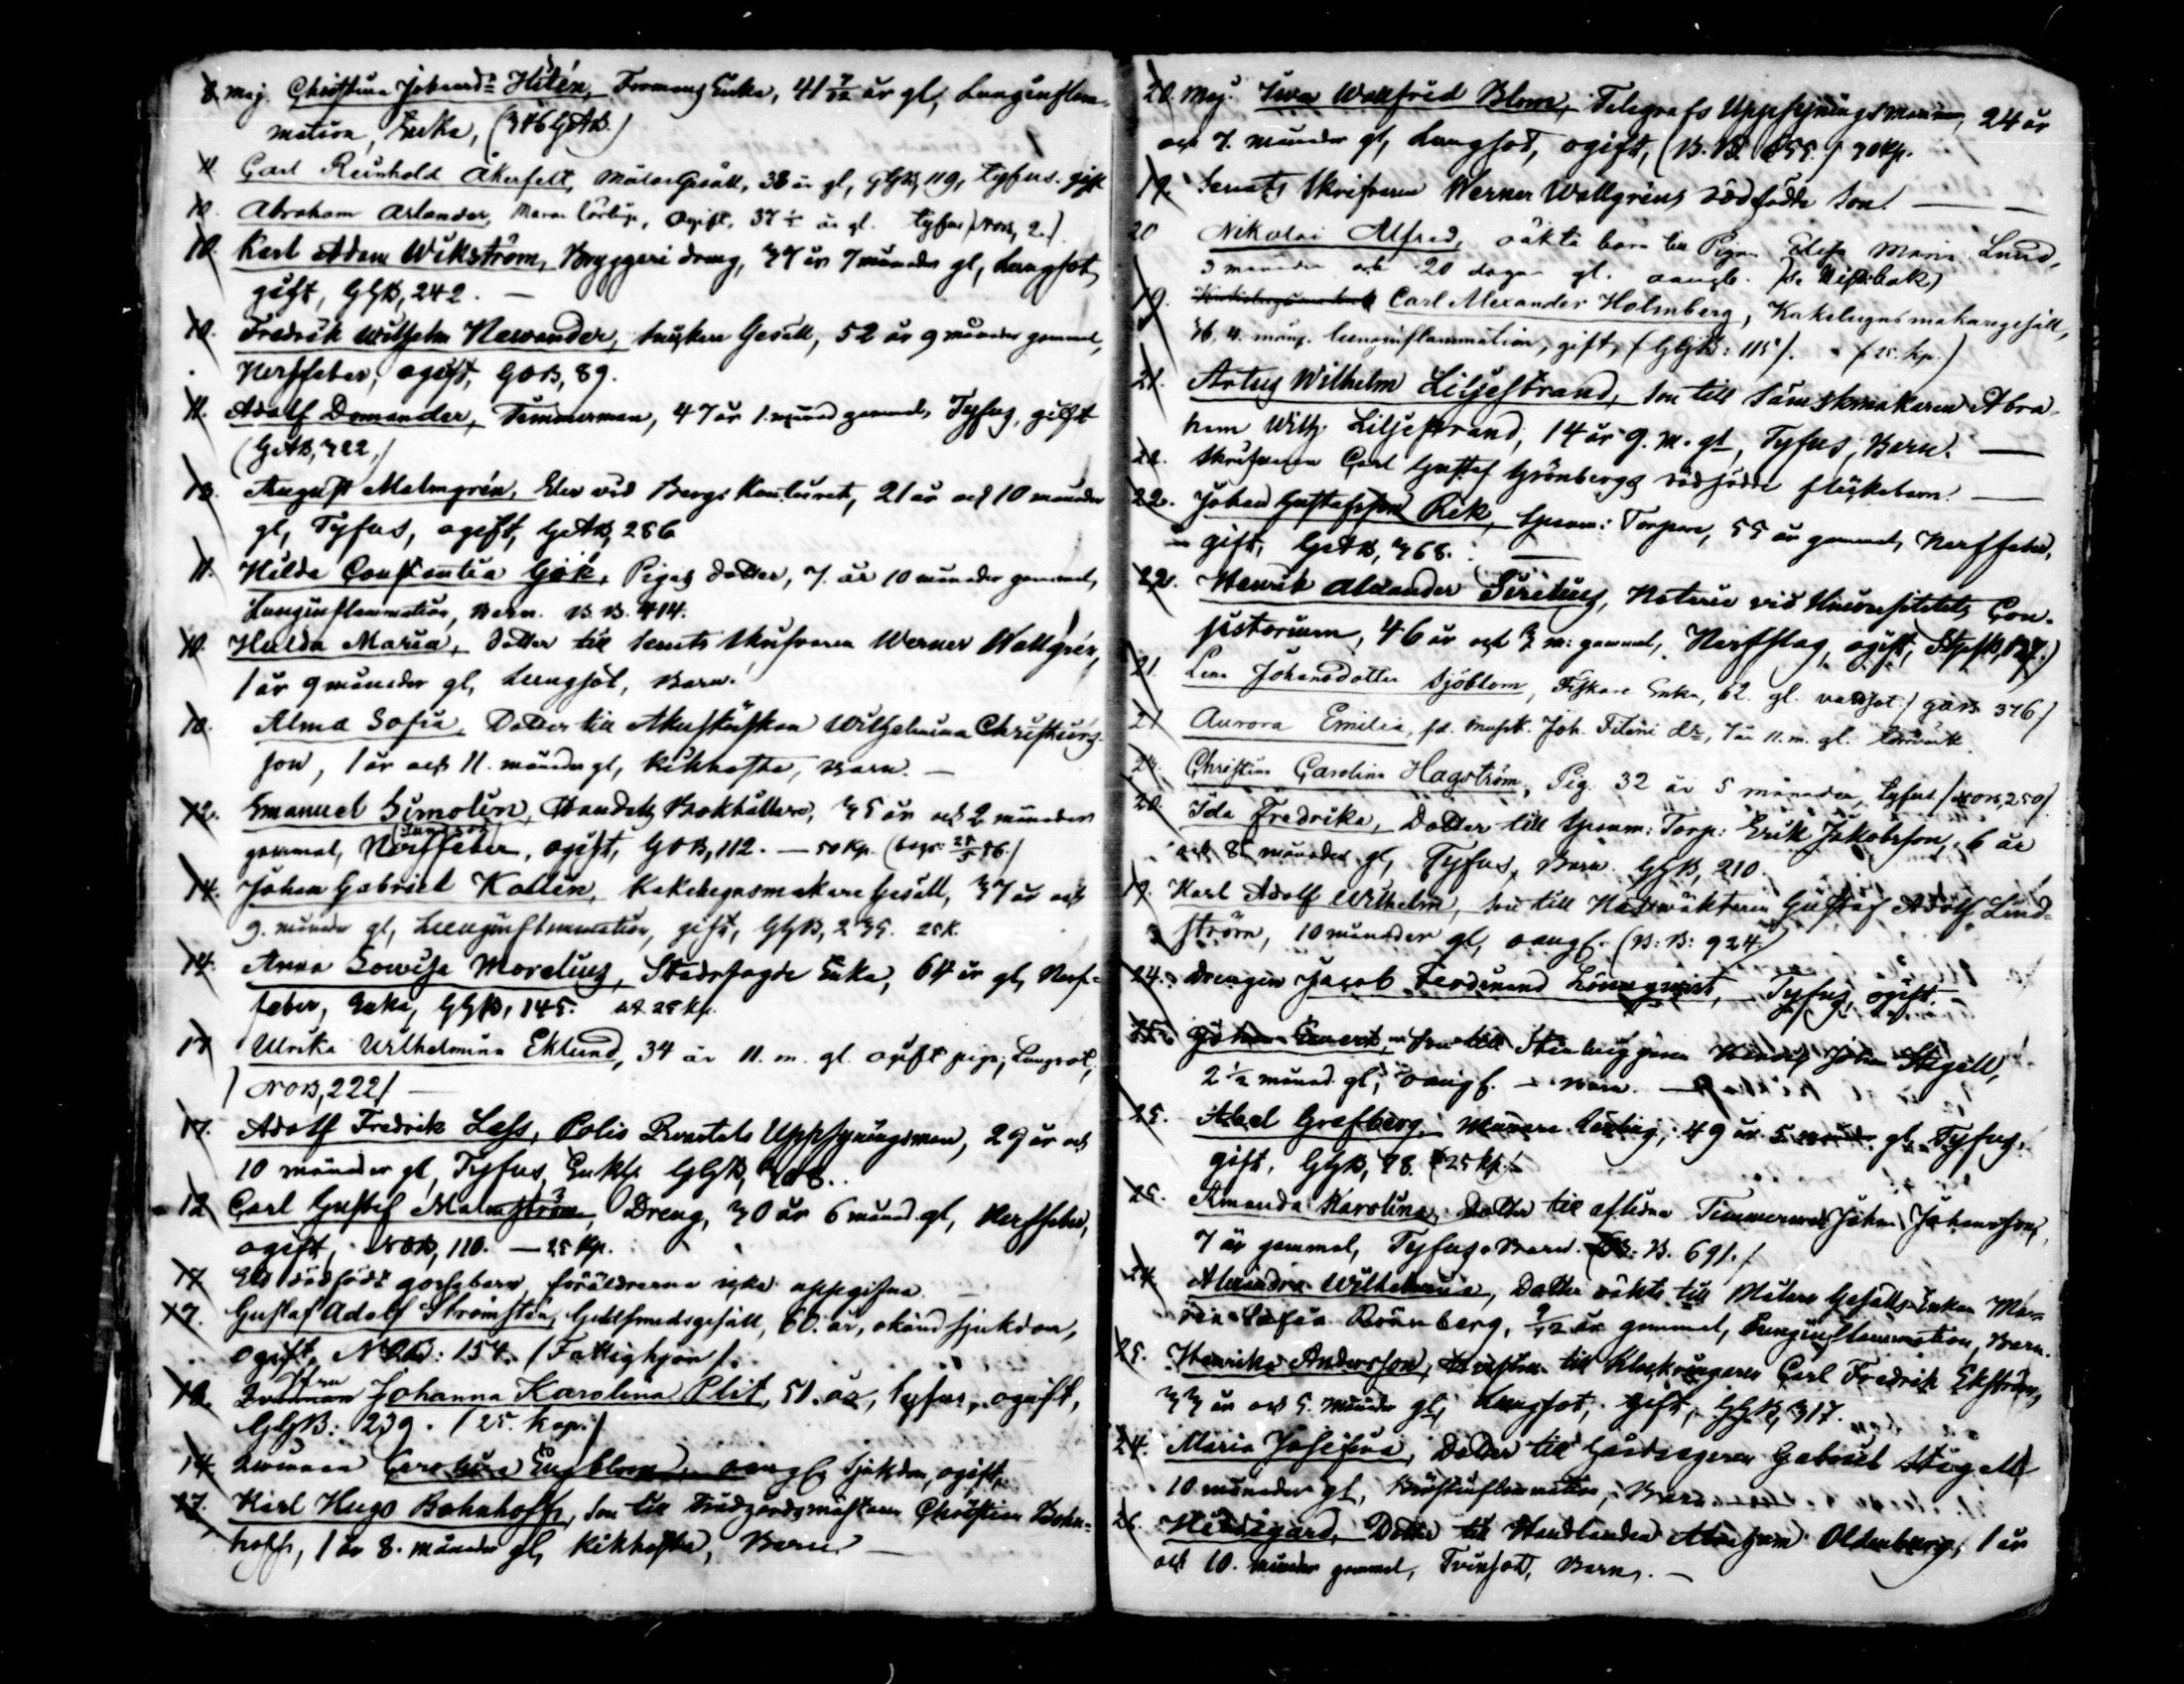 8. Maj. Christina Johansd:r Hitén, Formans Enka, 41 7/12 år gl, Lunginflam-
mation, Enka, (346 GAB.)
11. Carl Reinhold Åkerfelt, Målare Gesäll, 38 år gl, GGB, 119, tyfus. gift
10. Abraham Arlander, Ogift, 37 1/2 år gl. tyfus (NOB, 2.)
10. Karl Adam Wikström, Bryggeri dräng, 37 år 7 månader gl, Lungsot,
gift, GGB, 242. —
10. Fredrik Wilhelm Newander, Snickare Gesäll, 52 år 9 månader gammal,
Nerffeber, ogift, GOB, 89.
11. Adolf Domander, Timmerman, 47 år 1 månad gammal, Tyfus, gift
(GAB, 322.)
13. August Malmgrén, Elev vid Bergs Kontoret, 21 år och 10 månader
gl, Tyfus, ogift, GAB, 286
11. Hilda Constantia Gök, Pigas dotter, 7 år 10 månader gammal,
Lunginflammation, Barn. B. B. 414.
10. Hulda Maria, dotter till Senats Skrifvaren Werner Wallgrén,
1 år 9 månader gl, Lungsot, Barn.
10. Alma Sofia, Dotter till Wilhelmina Christiers-
son, 1 år och 11. månader gl, Kikhosta, Barn. —
12. Emanuel Simolin, Handels Bokhållare, 35 år och 2 månader
gammal, Nerffeber, ogift, GOB, 112. — 50 Kp. (begr. 25/5 86.)
14. Johan Gabriel Kallén, Kakelugnsmakare Gesäll, 37 år och
9. månader gl, Lunginflammation, gift, GGB, 235. 25 K.
14. Anna Lowisa Morelius, Stadsfogde Enka, 64 år gl, Nerf-
feber, Enka, GGB, 145. 25 Kp.
17 Ulrika Wilhelmina Eklund, 34 år 11. m. gl. ogift piga, Lungsot,
(NOB, 222) —
17. Adolf Fredrik Lass, Polis Uppsyningsman, 29 år och
10 månader gl, Tyfus, Enkl. GGB, 308.
12 Carl Gustaf Malmström, Dräng, 30 år 6 månad. gl, Nerffeber,
ogift, NOB, 110. — 25 Kp.
17 Ett dödfödt gossebarn, föräldrarne icke uppgifna —
17. Gustaf Adolf Strömstén, Guldsmedsgesäll, 60. år, okänd sjukdom,
ogift, NOB: 154. (Fattighjon).
18. Johanna Karolina Plit, 51. år, tyfus, ogift,
GGB: 239. (25. kop.)
14. Qvinnan Carolina Engblom, oangf. Sjukdom, ogift,
17. Karl Hugo Bohnhoff, Son till Trädgårdsmästaren Christian Bohn-
hoff, 1 år 8. månader gl, Kikhosta, Barn —
20. Maj. Iwar Wallfrid Blom, Telegrafs Uppsyningsmannen, 24 år
och 7. månader gl, Lungsot, ogift, (B. B. 655.) 30 Kp.
19. Senats Skrifvaren Werner Wallgréns dödfödde Son. —
20 Nikolai Alfred, oäkta barn till Pigan Maria Lund,
3 månader och 20 dagar gl. oangf.
19. Carl Alexander Holmberg, Kakelugnsmakaregesäll,
36, 4. mång. lunginflammation, gift, (GGB: 115). (25. kp.)
21. Artus Wilhelm Liljestrand, Son till Sämskmakaren Abra-
ham Wilh. Liljestrand, 14 år 9. m. gl, Tyfus, Barn. —
22. Skrifvaren Carl Gustaf Grönbergs dödfödde flickebarn. —
22. Johan Gustafsson Rik, Spanm: Torpare, 55 år gammal, Nerffeber,
gift, GAB, 368. —
22. Henrik Alexander Sirelius, Notarie vid Universitetets Con-
sistorium, 46 år och 3 m: gammal, Nerfslag, ogift,
21. Lena Johansdotter Sjöblom, Fiskare Enka, 62. gl. vattsot (GAB 376)
21 Aurora Emilia, fd. Joh. d:r, 7 år 11. m. gl.
24. Christina Carolina Hagström, Pig. 32 år 5 månader, tyfus (NOB, 250)
20. Ida Fredrika, Dotter till Spanm: Torp: Erik Jakobsson, 6 år
och 8 månader gl, Tyfus, Barn. GGB, 210.
19. Karl Adolf Wilhelm, Son till Gustaf Adolf Lind-
ström, 10 månader gl, oangf. (B: B: 924.)
24. Drängen Jacob Ferdinand Lönnqvist, Tyfus, ogift. —
25. Johan Evert, Son till Johan Stigell,
2 1/2 månad. gl, oangf. — Barn. —
25. Abel Grefberg, Murare Lärling, 49 år 5 månader gl, Tyfus,
gift, GGB, 78. (25 Kp.)
25. Amanda Karolina, Dotter till aflidne Timmerman Johan Johansson,
7 år gammal, Tyfus, Barn. (B: B. 691.)
24. Alexandra Wilhelmina, Dotter oäkta till Målare Gesälls Enkan Ma-
ria Sofia Rönnberg, 9/12 år gammal, Lunginflammation, Barn.
25. Henrika Andersson, Hustru till Klockringaren Carl Fredrik Ekström,
33 år och 5. månader gl, Lungsot, gift, GGB, 317.
24. Maria Josefina, Dotter till Gårdsägaren Gabriel Stigell
10 månader gl, Bröstinflammation, Barn.
26. Hildegard, Dotter till Handlanden Abraham Oldenburg, 1 år
och 10. månader gammal, Tvinsot, Barn. —